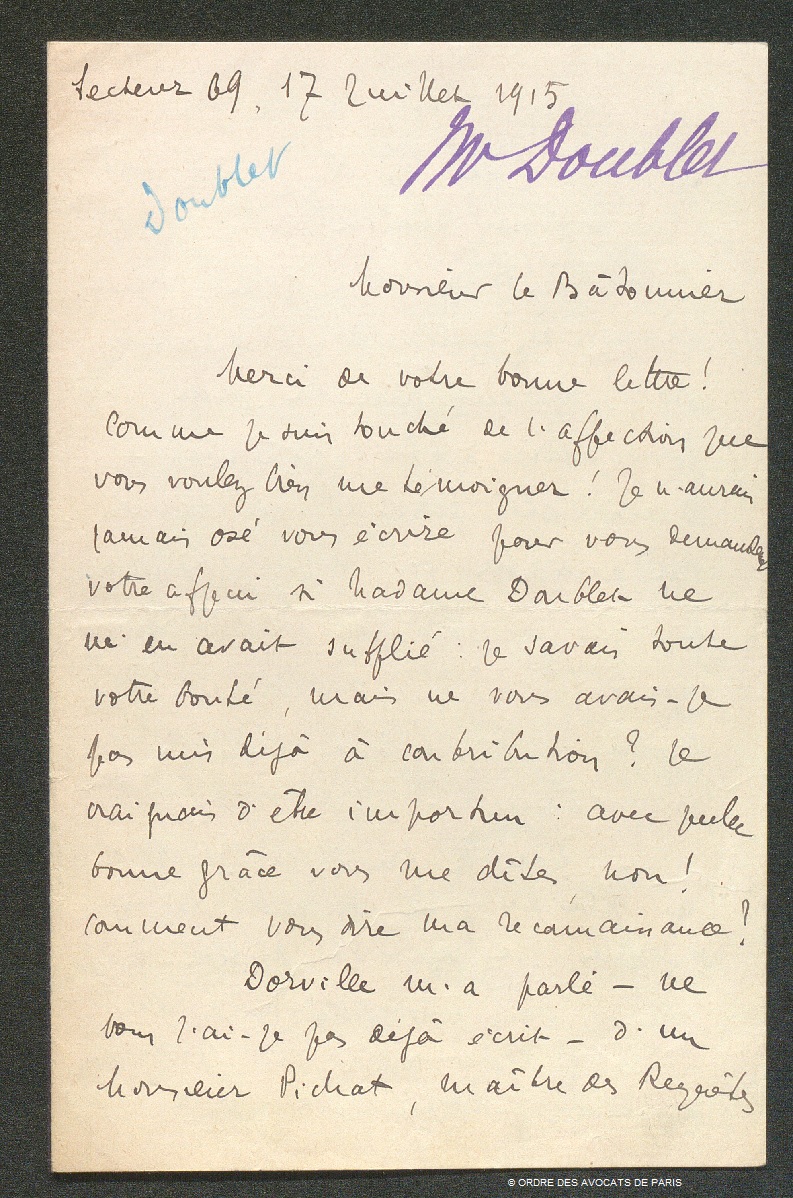 Secteur 69, 17 Juillet 1915
Mr Doublet
Doublet
Monsieur le Bâtonnier
Merci de votre bonne lettre !
Comme je suis touché de l'affection que
vous voulez bien me témoigner ! Je n'aurais
jamais osé vous écrire pour vous demander
votre appui si Madame Doublet ne
m'en avait supplié : je savais toute
votre bonté, mais ne vous avais-je
pas mis déjà à contribution ? Je
craignais d'être importun : avec quelle
bonne grâce vous me dîtes, non !
Comment vous dire ma reconnaissance ?
Dorville m'a parlé — ne
vous l'ai-je pas déjà écrit — d'un
Monsieur Pichat, maître des Requêtes
© ORDRE DES AVOCATS DE PARIS